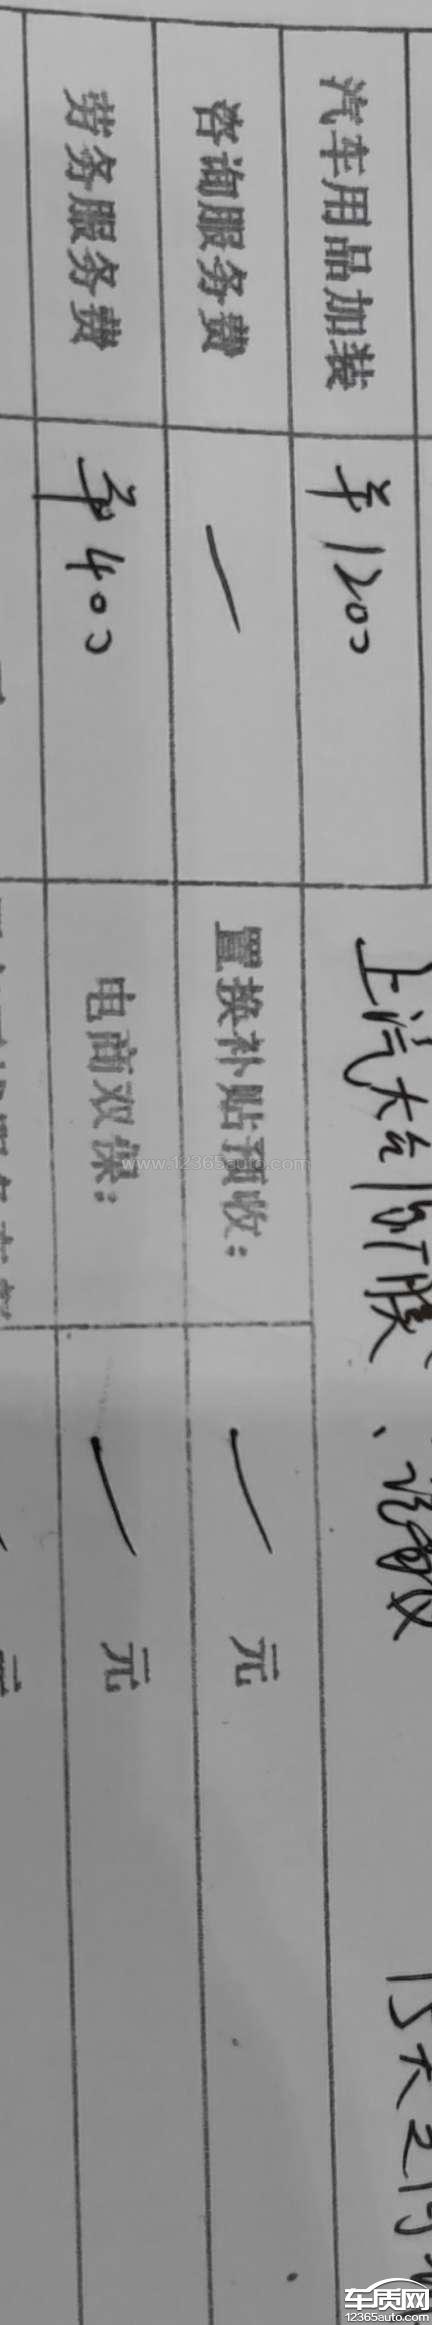 上汽大众
汽车用品加装 ¥1200
咨询服务费 — 置换补贴预收: — 元
劳务服务费 ¥400 电商双保: — 元
www.12365auto.com
车质网
12365auto.com